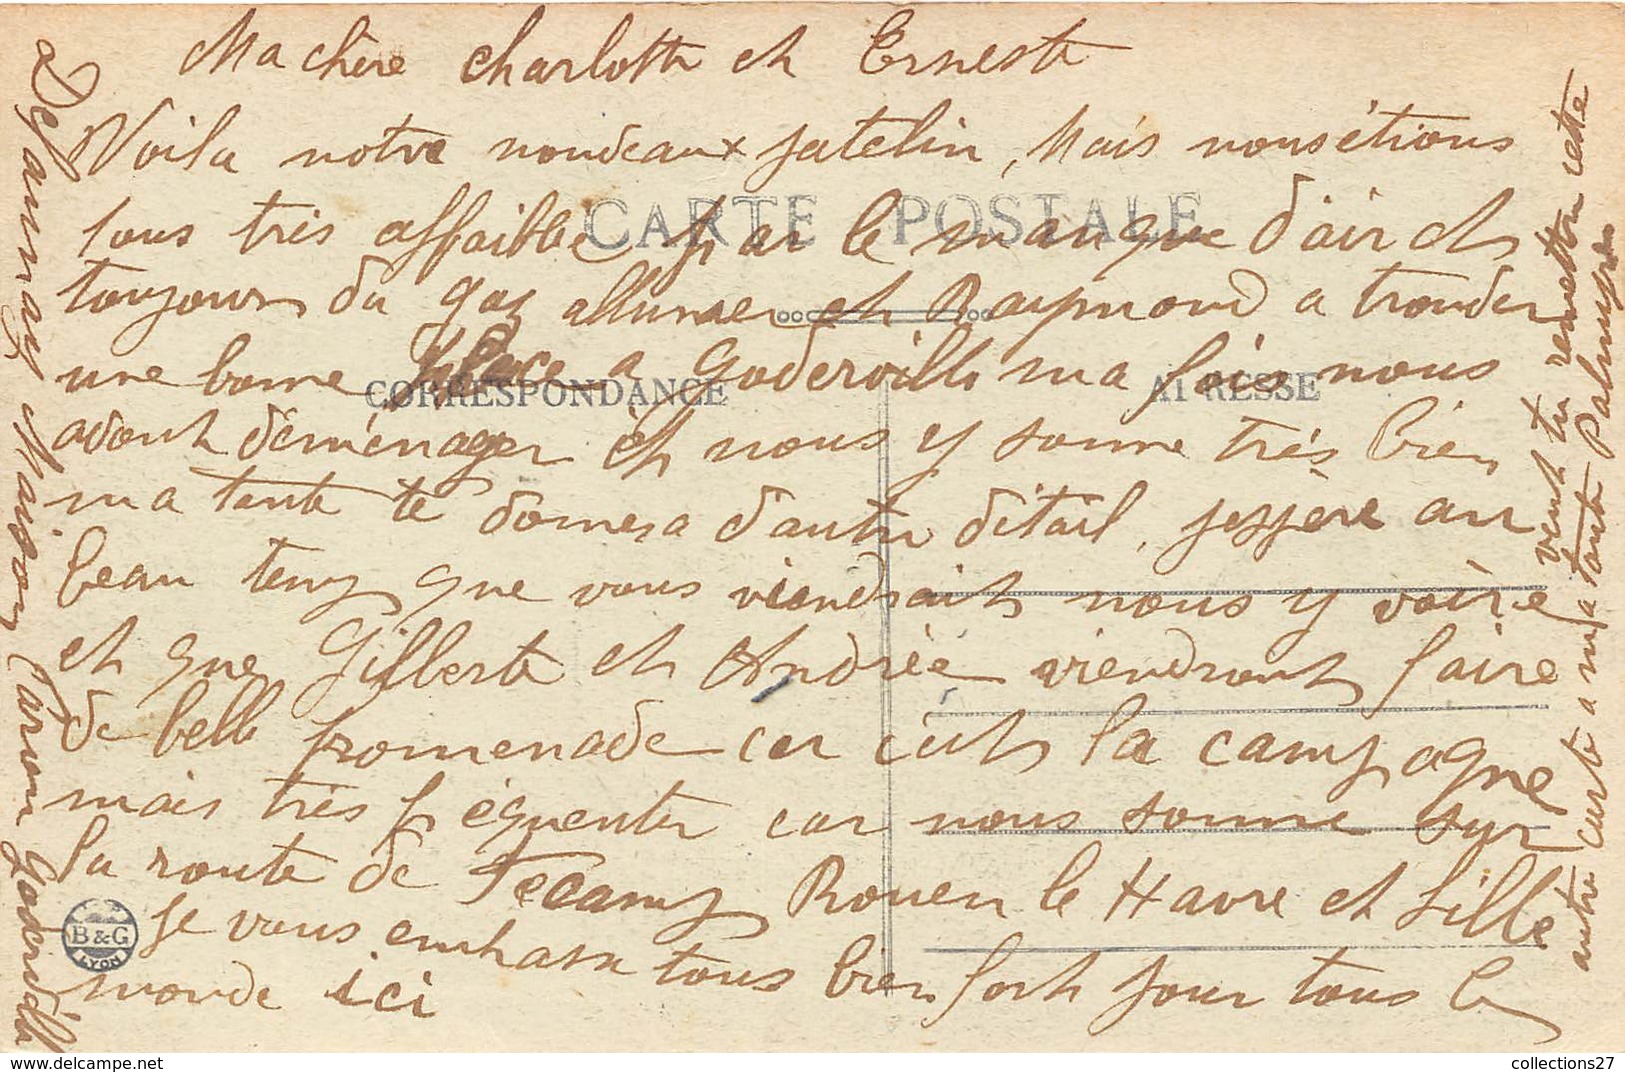 Ma chère Charlotte et Ernest
Voila notre noudeaux patelin, Mais nous étions
tous très affaiblie par le manque d'air et
toujours du gaz allumer et Raymond a trouder
une bonne place a Goderville ma fois nous
adont déménager et nous y somme très bien
ma tante te donnera d'autre détail, jespère au
beau temp que vous viendrait nous y voire
et que Gilberte et Andrée viendront faire
de belle promenade car c'est la campagne
mais très fréquenter car nous somme sur
la route de Fécamp Rouen le Havre et Lille
je vous embrasse tous bien fort pour tous le
monde ici
Maison Caron Goderville
veut tu remettre cette
autre carte a ma tante Palmyre
CARTE POSTALE
CORRESPONDANCE
ADRESSE
B & G
LYON
collections27